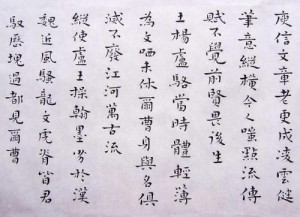 庾信文章老更成凌雲健
筆意縱橫今人嗤點流傳
賦不覺前賢畏後生
王楊盧駱當時體輕薄
為文哂未休爾曹身與名俱
滅不廢江河萬古流
縱使盧王操翰墨劣於漢
魏近風騷龍文虎脊皆君
馭歷塊過都見爾曹